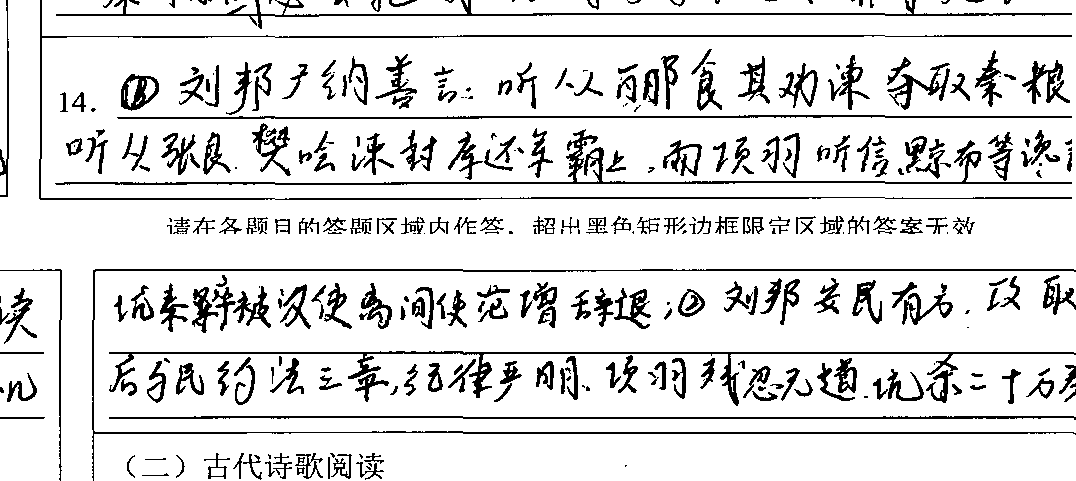 14. ① 刘邦广纳善言：听从郦食其劝谏夺取秦粮
听从张良.樊哙谏封库还军霸上，而项羽听信黥布等谗
请在各题目的答题区域内作答，超出黑色矩形边框限定区域的答案无效
读
坑秦 被汉使离间使范增辞退；② 刘邦安民有方.攻取
后与民约法三章,纪律严明.项羽残忍无道.坑杀二十万
（二）古代诗歌阅读